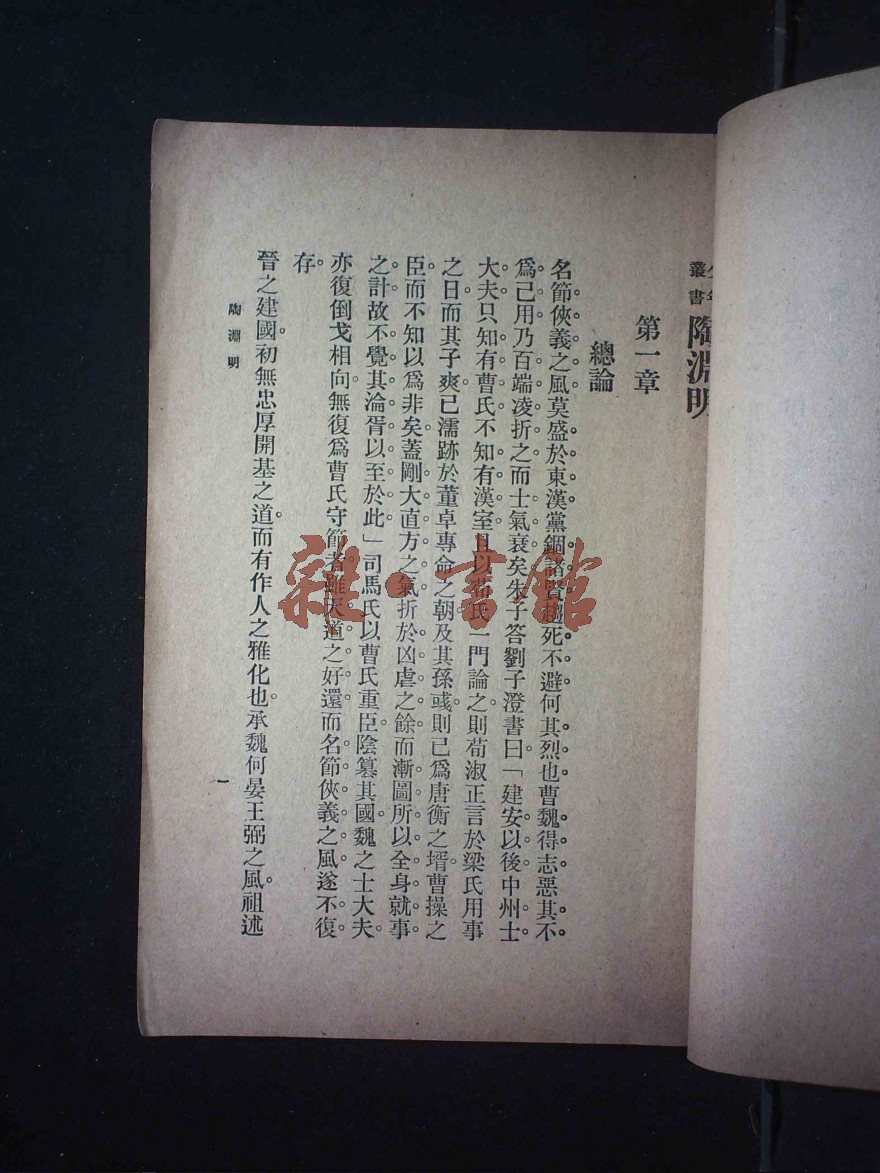 叢書
陶淵明
第一章
總論
名節俠義之風莫盛於東漢黨錮諸賢趨死不避何其烈也曹魏得志惡其不
爲己用乃百端凌折之而士氣衰矣朱子答劉子澄書曰「建安以後中州士
大夫只知有曹氏不知有漢室且以荀氏一門論之則荀淑正言於梁氏用事
之日而其子爽已濡跡於董卓專命之朝及其孫彧則已爲唐衡之壻曹操之
臣而不知以爲非矣蓋剛大直方之氣折於凶虐之餘而漸圖所以全身就事
之計故不覺其淪胥以至於此」司馬氏以曹氏重臣陰簒其國魏之士大夫
亦復倒戈相向無復爲曹氏守節者雖天道之好還而名節俠義之風遂不復
存。
晉之建國初無忠厚開基之道而有作人之雅化也承魏何晏王弼之風祖述
陶淵明
一
雜·書館